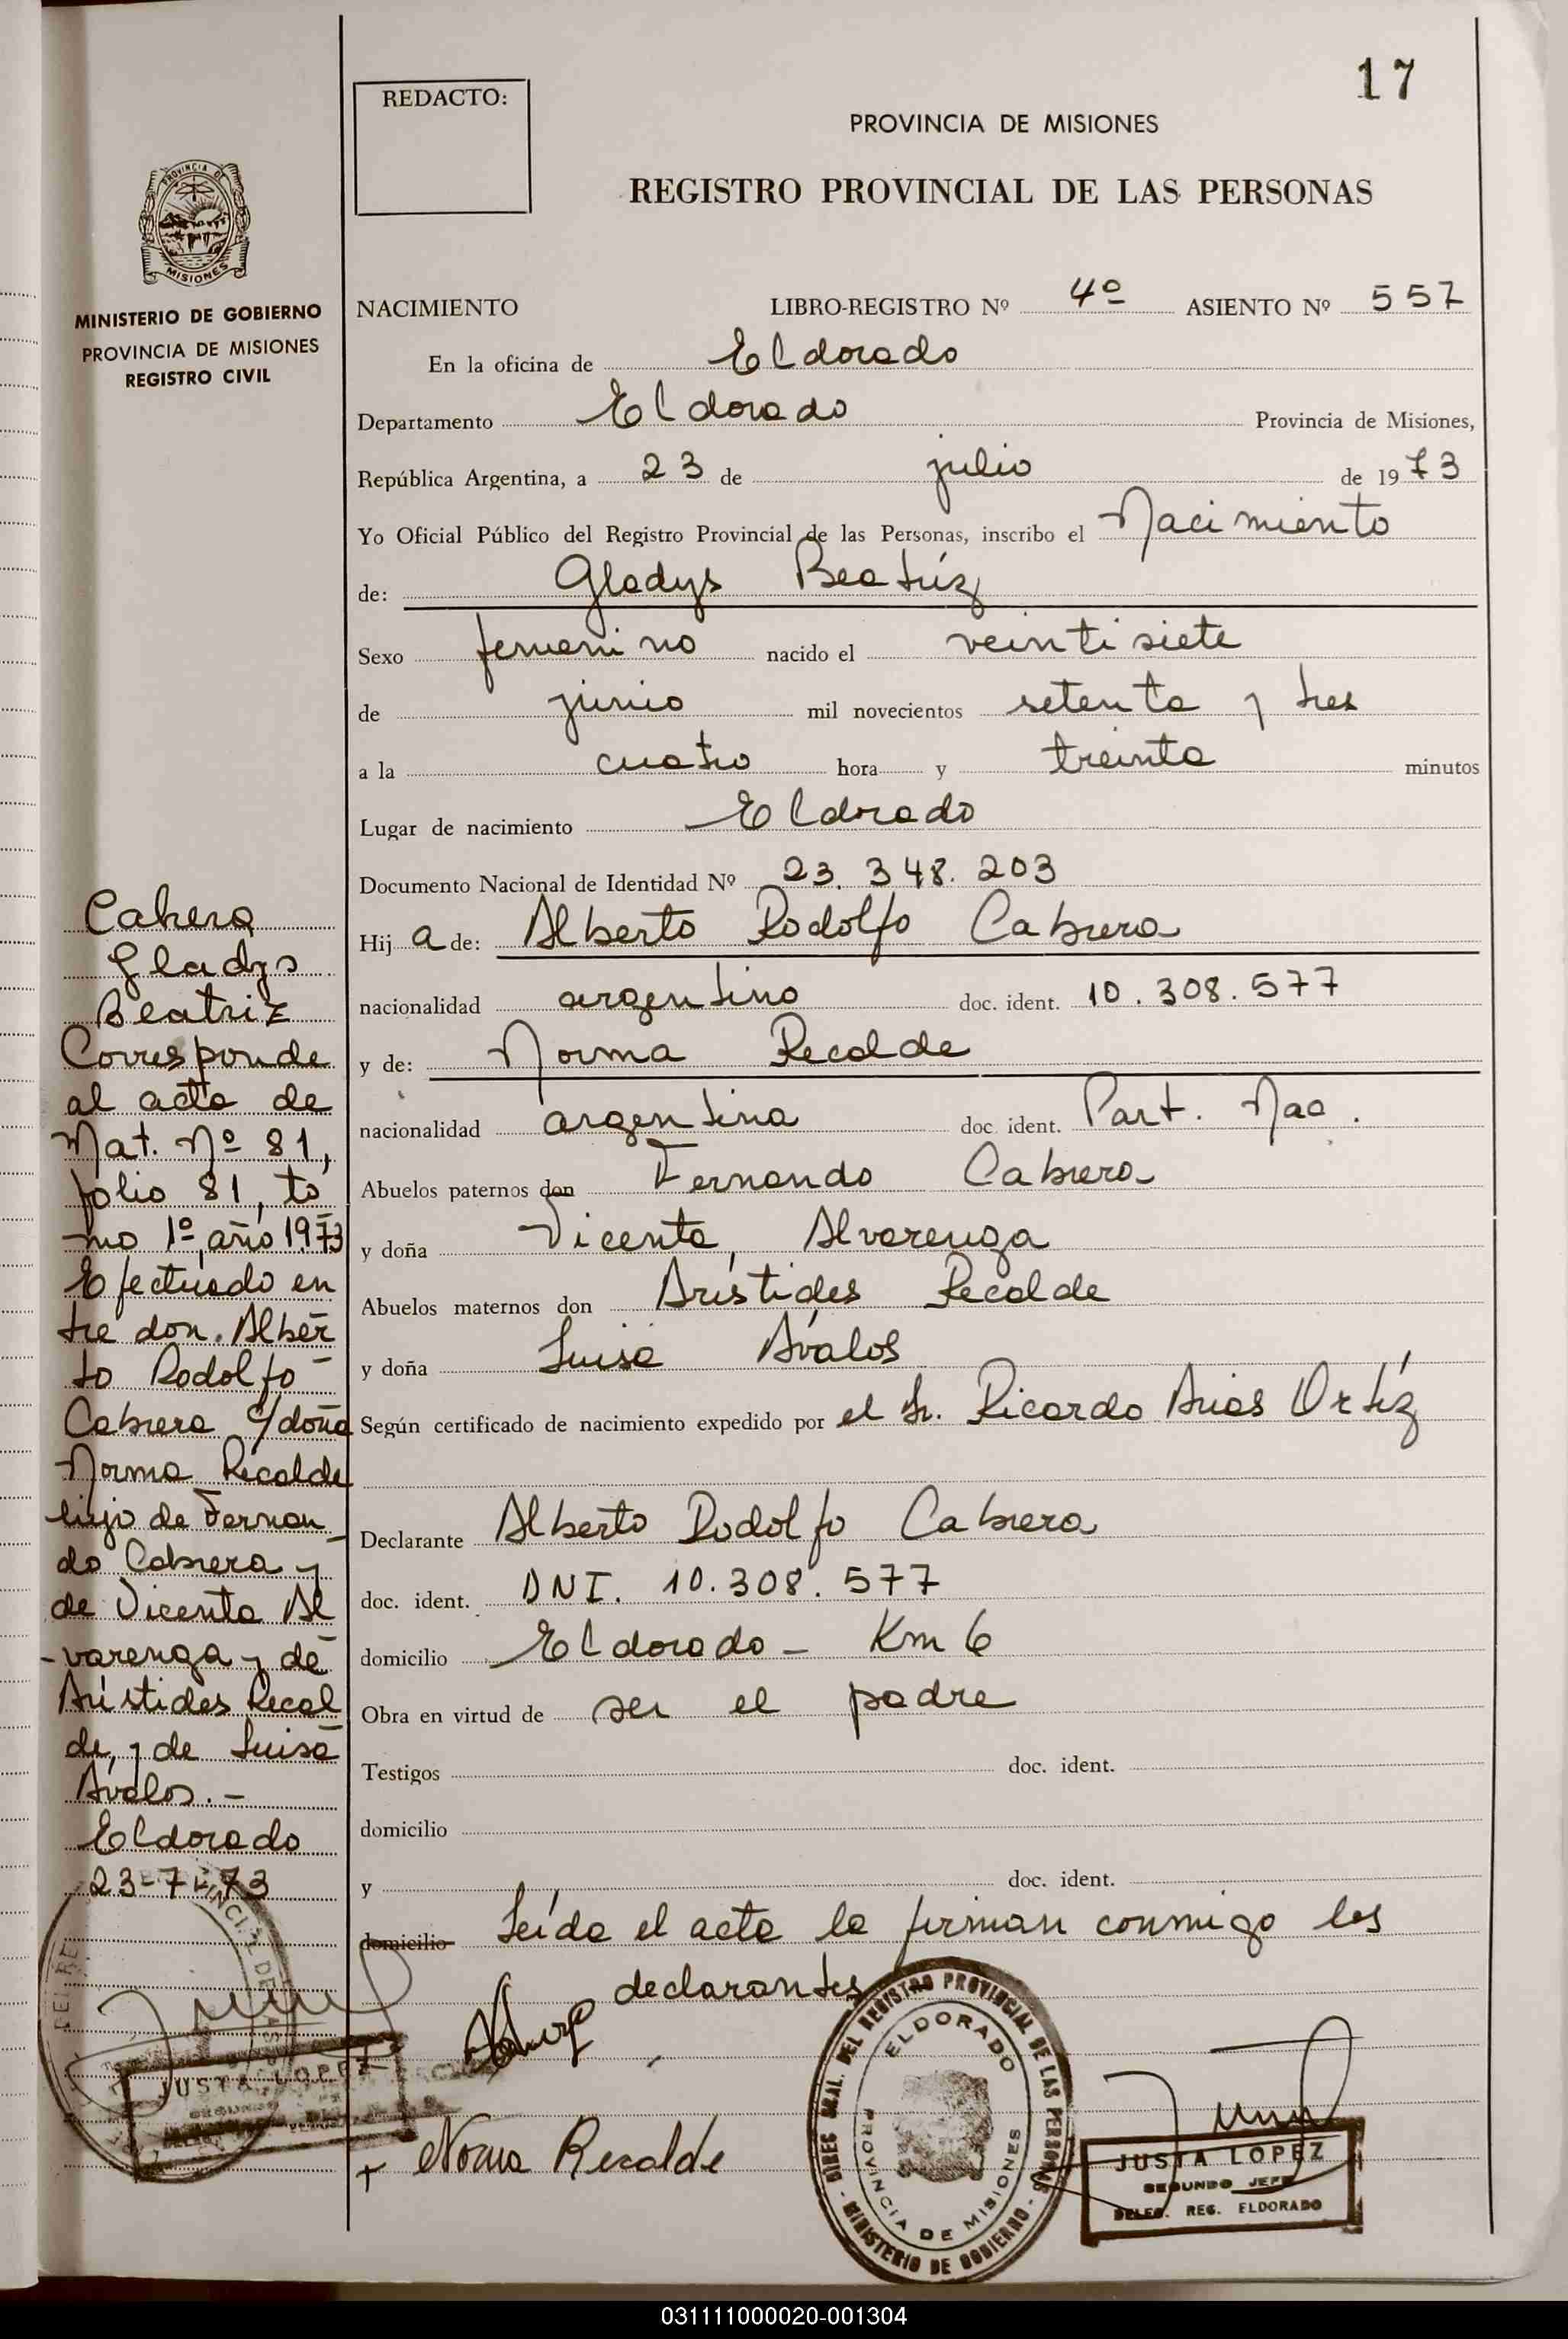 17
REDACTO:
PROVINCIA DE MISIONES
REGISTRO PROVINCIAL DE LAS PERSONAS
PROVINCIA DE
MISIONES
MINISTERIO DE GOBIERNO
PROVINCIA DE MISIONES
REGISTRO CIVIL
NACIMIENTO LIBRO-REGISTRO Nº 4º ASIENTO Nº 557
En la oficina de Eldorado
Departamento Eldorado Provincia de Misiones,
República Argentina, a 23 de julio de 1973
Yo Oficial Público del Registro Provincial de las Personas, inscribo el Nacimiento
de: Gladys Beatríz
Sexo femenino nacido el veintisiete
de junio mil novecientos setenta y tres
a la cuatro hora y treinta minutos
Lugar de nacimiento Eldorado
Documento Nacional de Identidad Nº 23.348.203
Hij a de: Alberto Rodolfo Cabrera
nacionalidad argentino doc. ident. 10.308.577
y de: Norma Recalde
nacionalidad argentina doc. ident. Part. Nac.
Abuelos paternos don Fernando Cabrera
y doña Vicenta Alvarenga
Abuelos maternos don Arístides Recalde
y doña Luisa Ávalos
Según certificado de nacimiento expedido por el Sr. Ricardo Arias Ortíz
Declarante Alberto Rodolfo Cabrera
doc. ident. DNI. 10.308.577
domicilio Eldorado - Km 6
Obra en virtud de ser el padre
Testigos doc. ident.
domicilio
y doc. ident.
domicilio Leída el acta la firman conmigo los
declarantes
Norma Recalde
DIREC. GRAL. DEL REGISTRO PROVINCIAL DE LAS PERSONAS
- MINISTERIO DE GOBIERNO -
ELDORADO
PROVINCIA DE MISIONES
JUSTA LOPEZ
SEGUNDO JEFE
DELEG. REG. ELDORADO
Cabrera
Gladys
Beatriz
Corresponde
al acta de
Mat. Nº 81,
folio 81, to
mo 1º, año 1973
Efectuado en
tre don. Alber
to Rodolfo
Cabrera c/doña
Norma Recalde
hijo de Fernan
do Cabrera y
de Vicenta Al
-varenga y de
Arístides Recal
de, y de Luisa
Ávalos.-
Eldorado
23-7-73
JUSTA LOPEZ
SEGUNDO
031111000020-001304